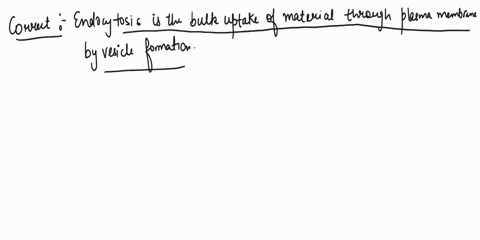 Correct :- Endocytosis is the bulk uptake of material through plasma membrane
by vesicle formation.